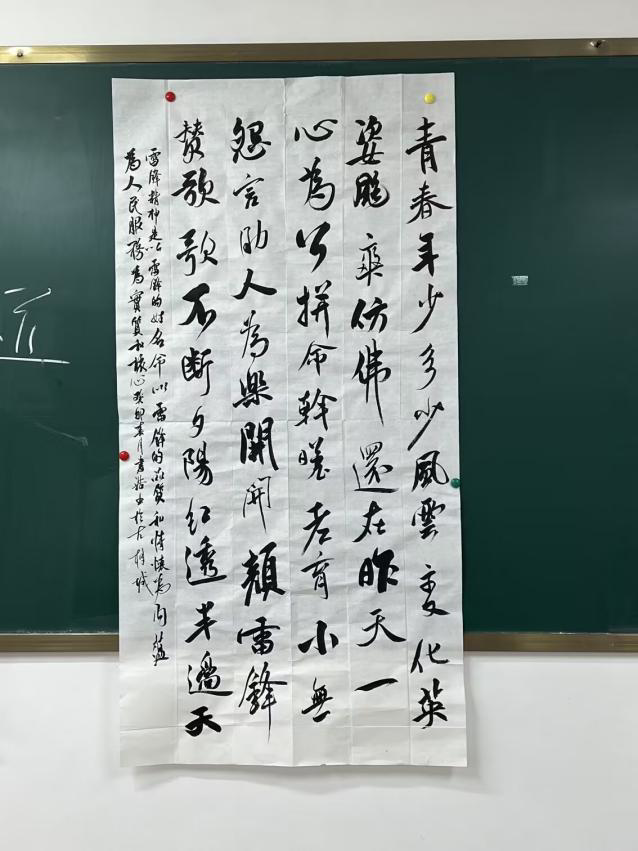 青春年少多少風雲變化英
姿颯爽仿佛還在昨天一
心為公拼命幹曖老育小無
怨言助人為樂開開顏雷鋒
贊歌歌不斷夕陽紅透半邊天
雷鋒精神是以雷鋒的姓名命以雷鋒的品質和情懷為內蘊
為人民服務為實質和核心癸卯春月書於古